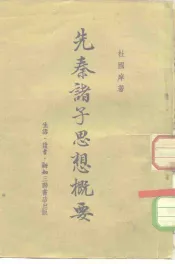 杜國庠著
先秦諸子思想概要
生活·讀書·新知三聯書店出版